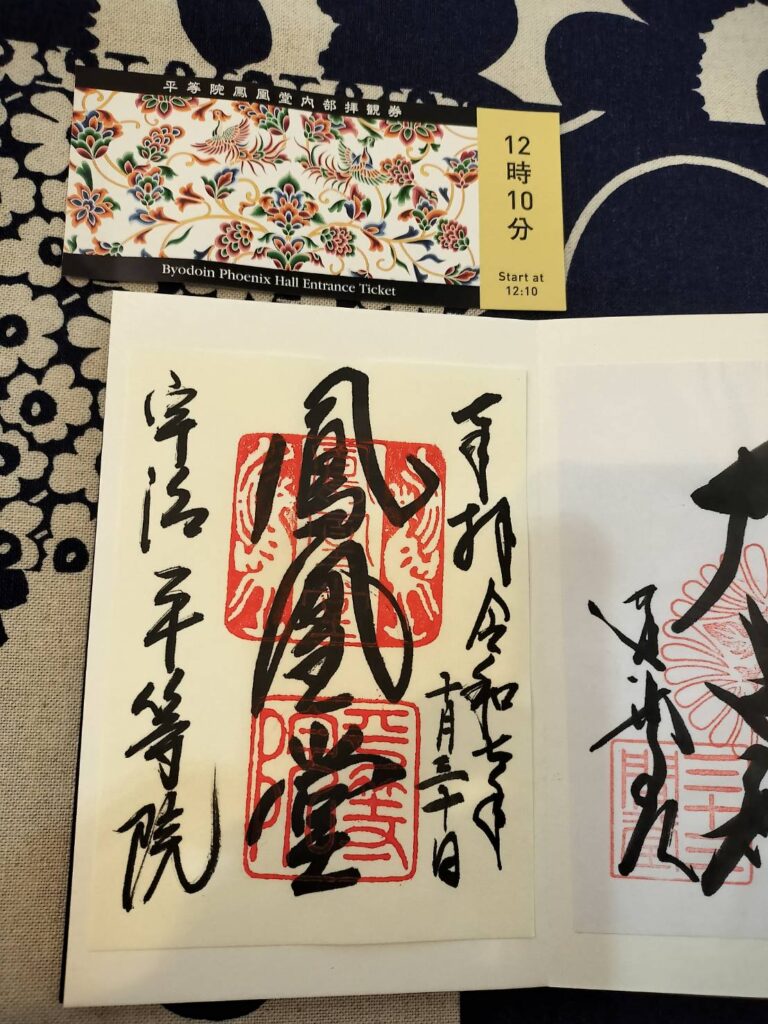 平等院鳳凰堂内部拝観券
Byodoin Phoenix Hall Entrance Ticket
12時10分
Start at
12:10
奉拝 令和七年
十月三十日
鳳凰堂
宇治 平等院
平等院
三十三